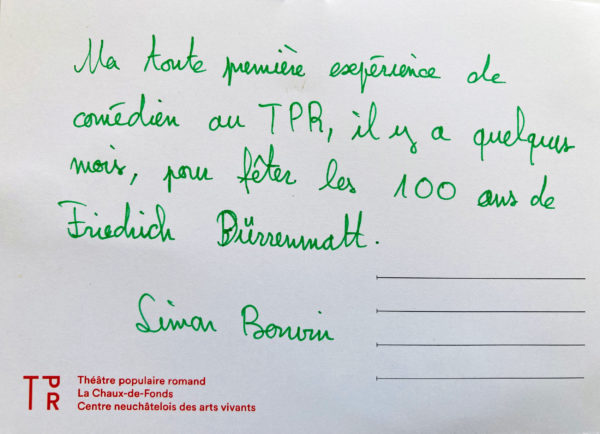 Ma toute première expérience de
comédien au TPR, il y a quelques
mois, pour fêter les 100 ans de
Friedrich Dürrenmatt.
Simon Bonvin
TPR
Théâtre populaire romand
La Chaux-de-Fonds
Centre neuchâtelois des arts vivants